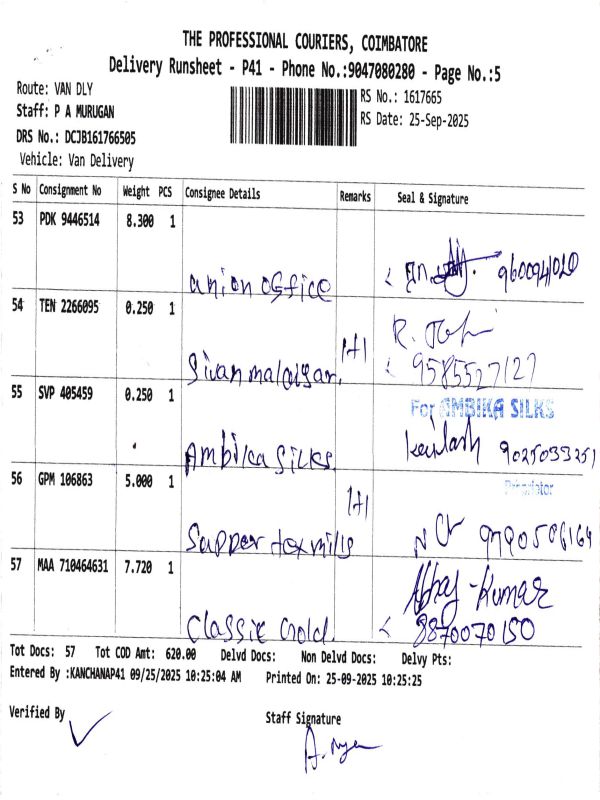 THE PROFESSIONAL COURIERS, COIMBATORE
Delivery Runsheet - P41 - Phone No.:9047080280 - Page No.:5
Route: VAN DLY
RS No.: 1617665
Staff: P A MURUGAN
RS Date: 25-Sep-2025
DRS No.: DCJB161766505
Vehicle: Van Delivery
S No Consignment No Weight PCS Consignee Details Remarks Seal & Signature
53 PDK 9446514 8.300 1
union office 9600941020
54 TEN 2266095 0.250 1
R.
9585527127
55 SVP 405459 0.250 1
For AMBIKA SILKS
Ambika Silks Kailash 9025033251
56 GPM 106863 5.000 1
Proprietor
Supper tex mills
57 MAA 710464631 7.720 1
Abhay - Kumar
Classic Gold. 8870070150
Tot Docs: 57 Tot COD Amt: 620.00 Delvd Docs: Non Delvd Docs: Delvy Pts:
Entered By :KANCHANAP41 09/25/2025 10:25:04 AM Printed On: 25-09-2025 10:25:25
Verified By
Staff Signature